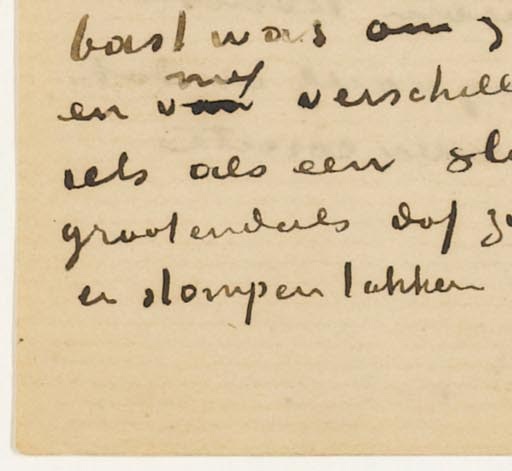 bast was om
met
en van verschille
iets als een gl
grootendeels dof
en stompen takken